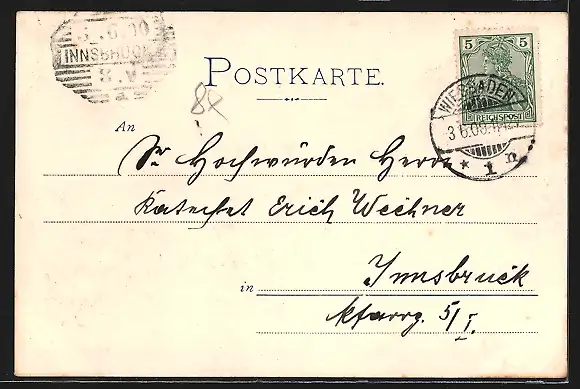 5. 6. 00
INNSBRUCK
8. V
2
5 5
REICHSPOST
WIESBADEN
3.6.00.
* 1 n
POSTKARTE.
88
An
Sr Hochwürden Herrn
Katechet Erich Wechner
in Innsbruck
Pfarrg. 5/I.